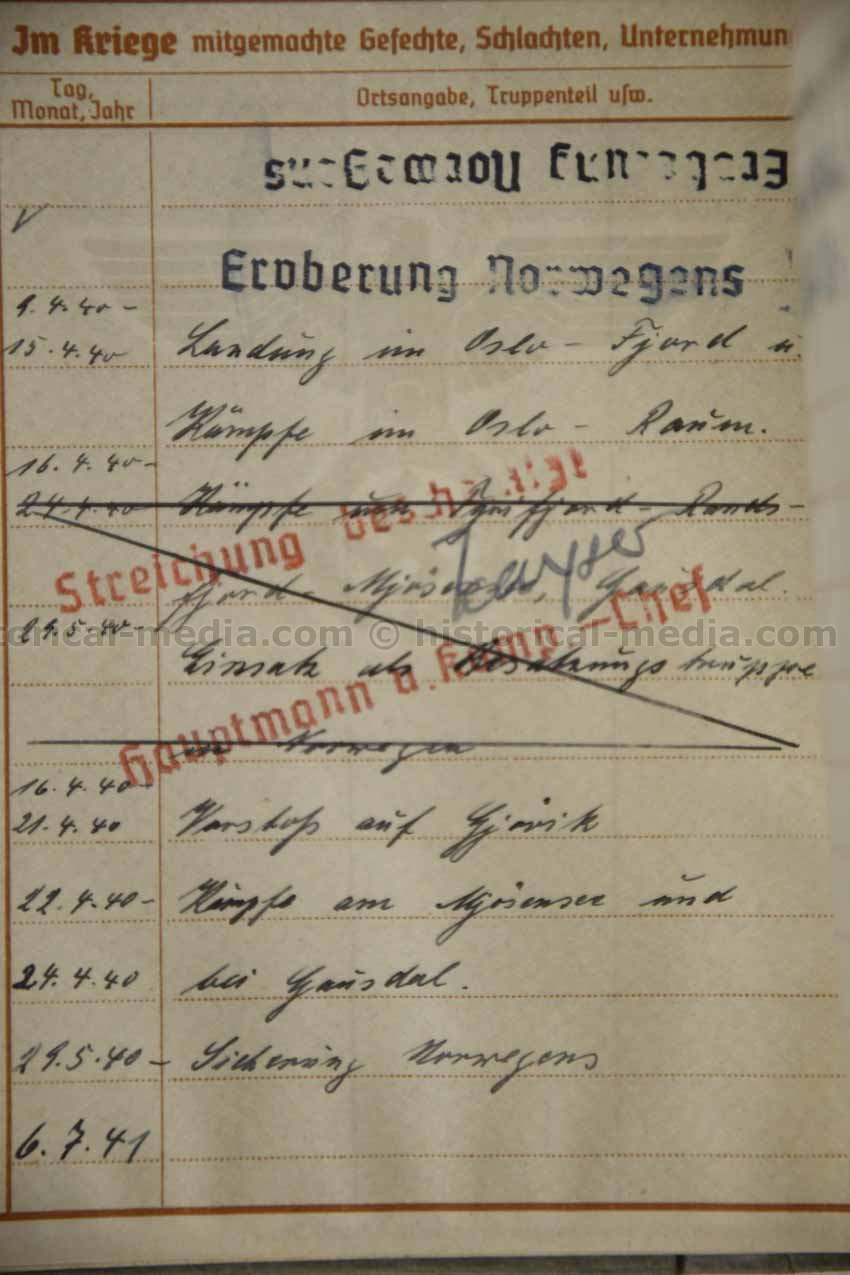 Im Kriege mitgemachte Gefechte, Schlachten, Unternehmun
Tag, Monat, Jahr
Ortsangabe, Truppenteil usw.
Eroberung Norwegens
Eroberung Norwegens
9.4.40 -
15.4.40 Landung im Oslo - Fjord u.
Kämpfe im Oslo - Raum.
16.4.40 -
24.4.40 Kämpfe um Tyrifjord - Rands-
fjord - Mjösensee, Gausdal.
29.5.40 -
Einsatz als Besatzungstruppe
in Norwegen
Streichung bestätigt
Hauptmann u. Komp.-Chef
16.4.40 -
21.4.40 Vorstoß auf Gjövik
22.4.40 - Kämpfe am Mjösensee und
24.4.40 bei Gausdal.
29.5.40 - Sicherung Norwegens
6.7.41
torical-media.com © historical-media.com ©